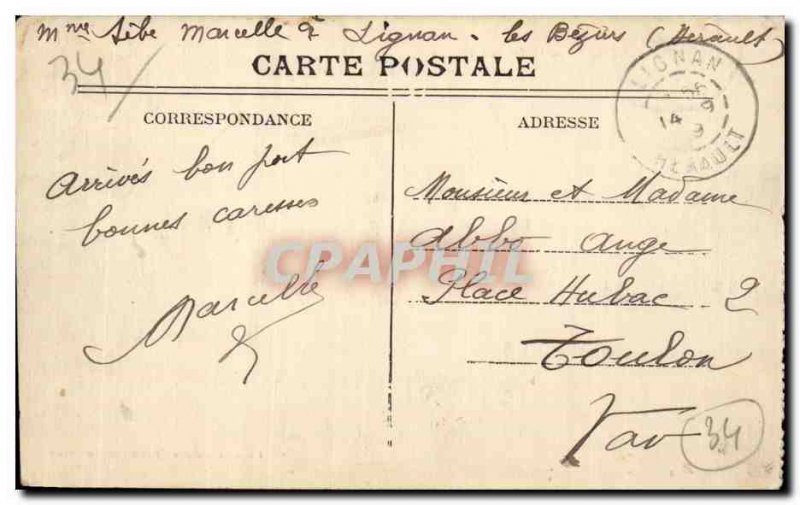 Mme Sèbe Marcelle à Lignan - les Béziers (Hérault)
34
CARTE POSTALE
LIGNAN
14 9
HERAULT
CORRESPONDANCE
ADRESSE
Arrivés bon port
bonnes caresses
Marcelle
Monsieur et Madame
Abbo Ange
Place Hubac 2
Toulon
Var
34
CPAPHIL